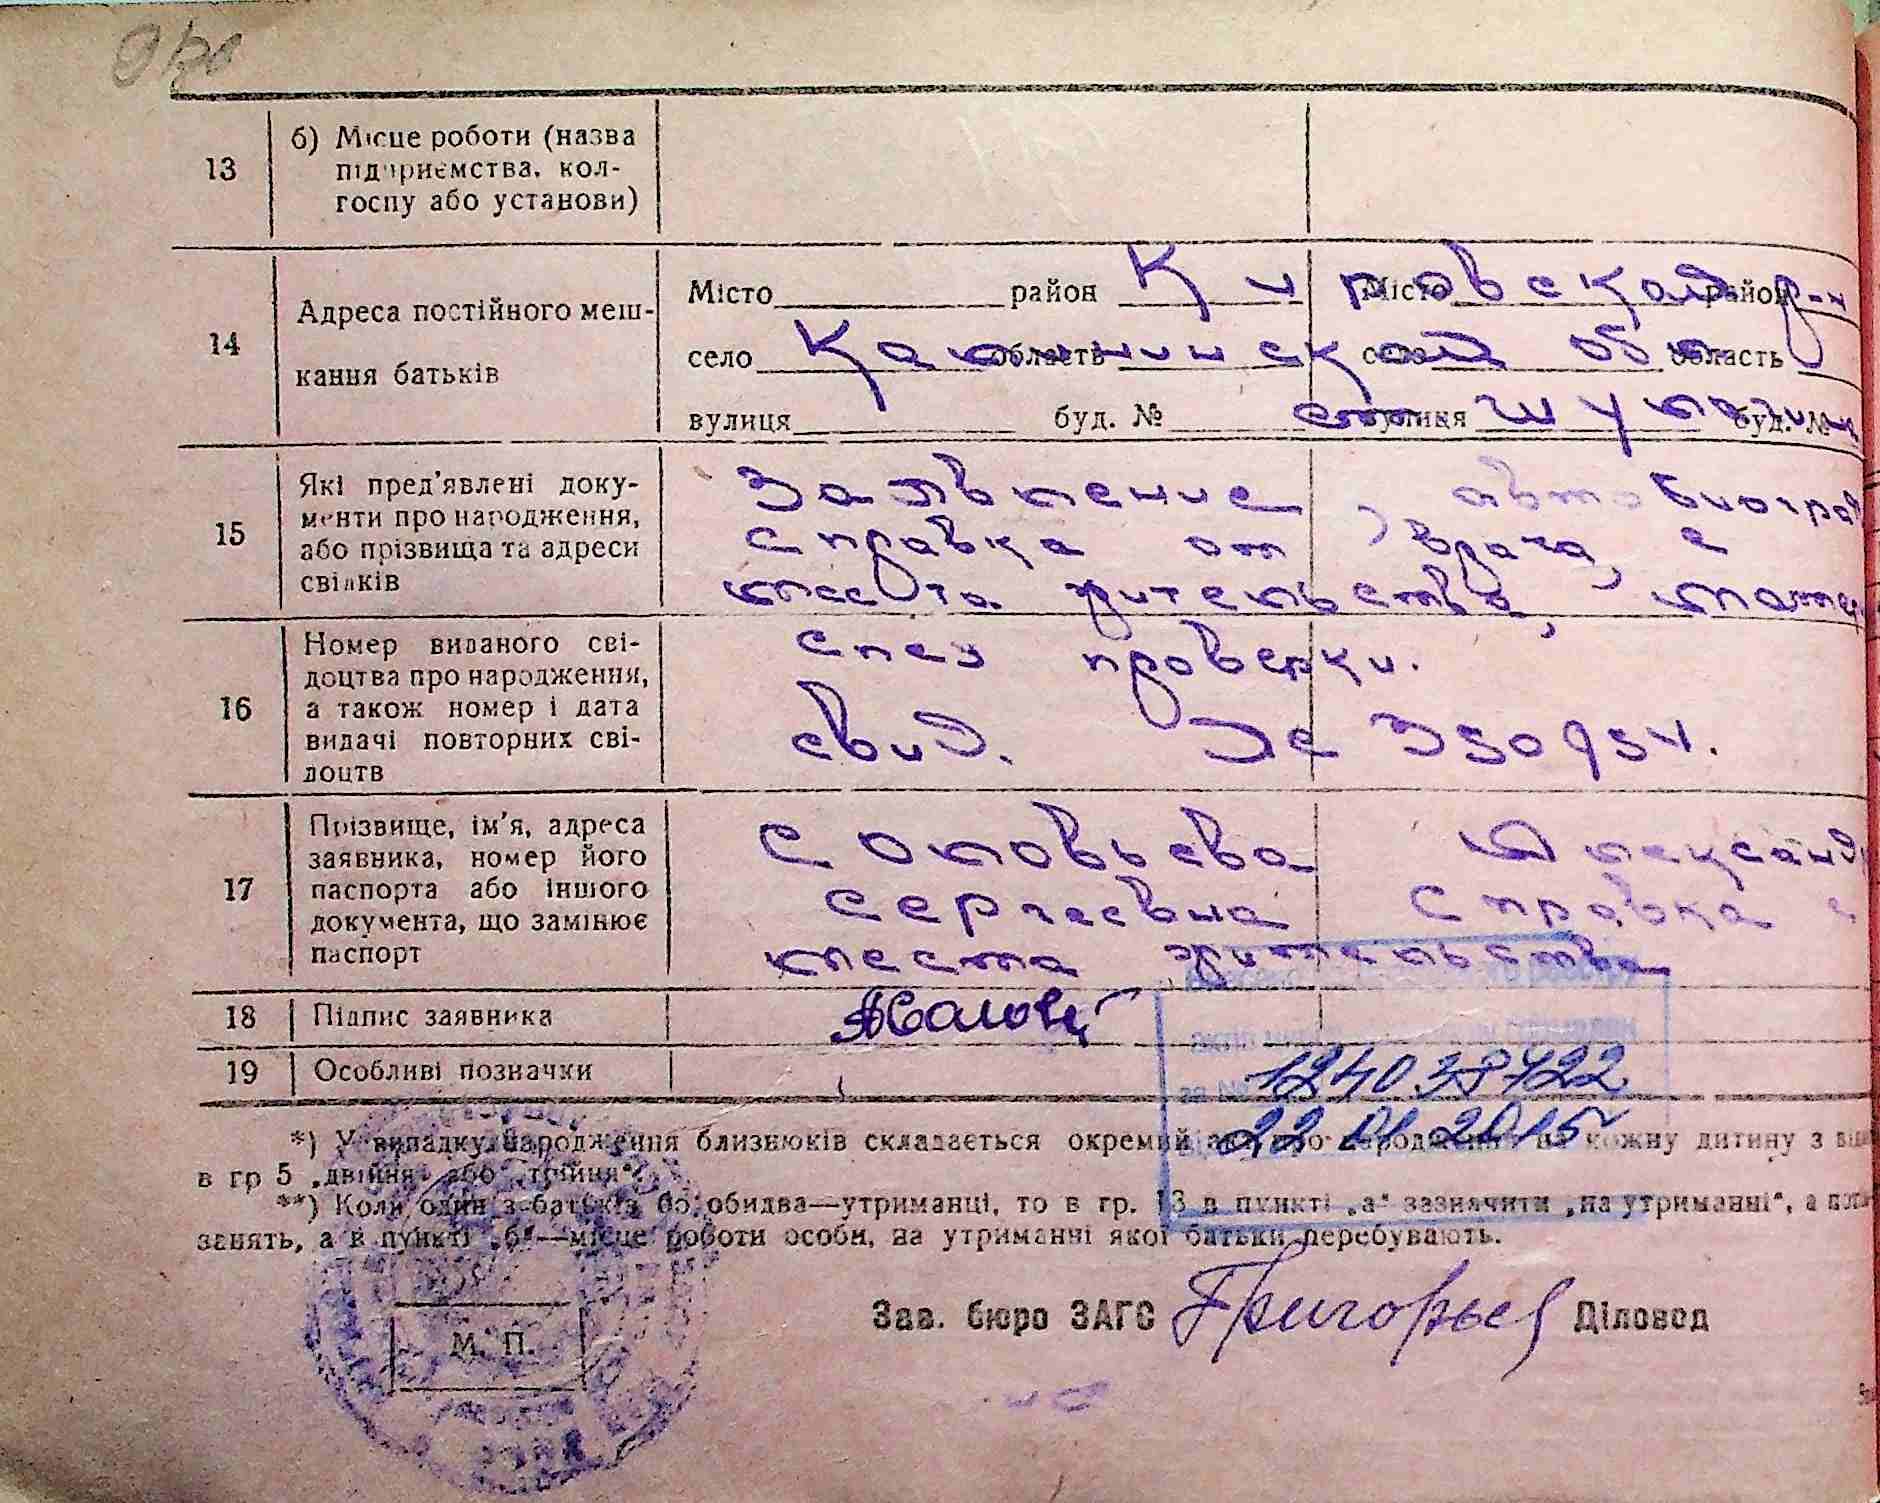 13
б) Місце роботи (назва
підприємства, кол-
госпу або установи)
14
Адреса постійного меш-
кання батьків
Місто район Місто район
Кировской р-н
село область село область
Калининской обл
вулиця буд. № вулиця буд. №
ст
15
Які пред'явлені доку-
менти про народження,
або прізвища та адреси
свідків
Заявление, автобиогра
справка от врача, с
места жительства,
16
Номер виданого сві-
доцтва про народження,
а також номер і дата
видачі повторних сві-
доцтв
спец проверки.
свид. № 350954.
17
Прізвище, ім'я, адреса
заявника, номер його
паспорта або іншого
документа, що замінює
паспорт
Соловьева Александ
Сергеевна Справка с
места жительства
18
Підпис заявника
19
Особливі позначки
за №
22 01 2015
*) У випадку народження близнюків складається окремий акт про народження на кожну дитину з
в гр 5 „двійня" або „трійня".
**) Коли один з батьків бо обидва—утриманці, то в гр. 13 в пункті „а" зазначити „на утриманні", а
занять, а в пункті „б"—місце роботи особи, на утриманні якої батьки перебувають.
Зав. бюро ЗАГС Григорьев Діловод
М. П.